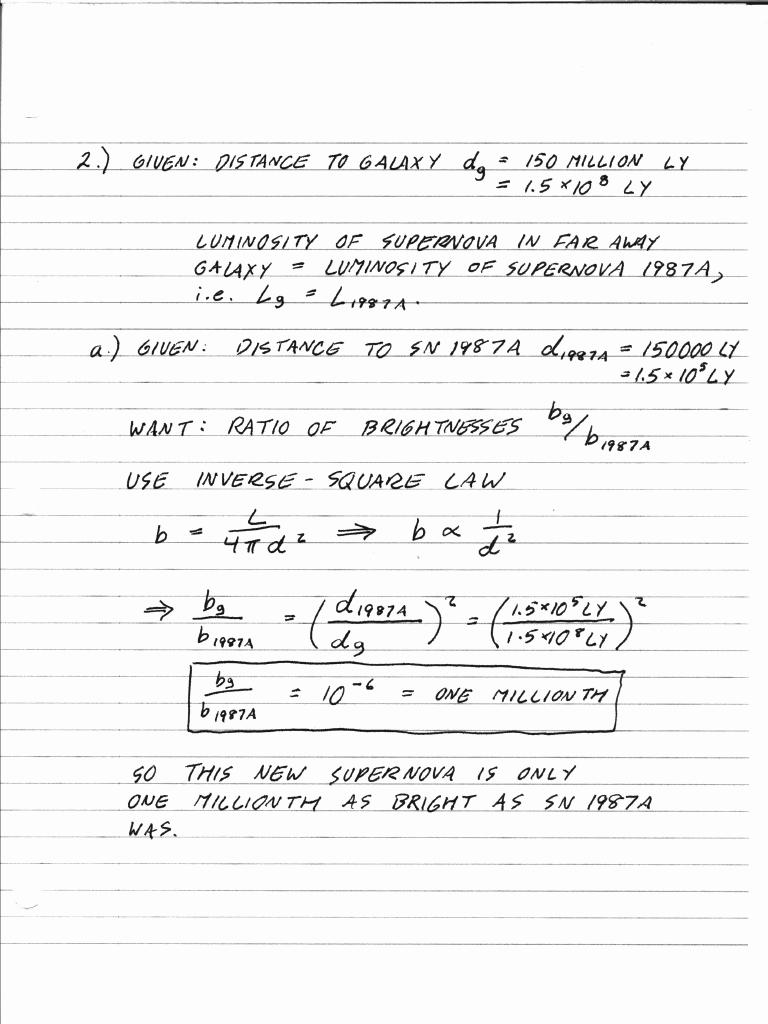 2.) GIVEN: DISTANCE TO GALAXY d_g = 150 MILLION LY
= 1.5 × 10^8 LY
LUMINOSITY OF SUPERNOVA IN FAR AWAY
GALAXY = LUMINOSITY OF SUPERNOVA 1987A,
i.e. L_g = L_1987A.
a.) GIVEN: DISTANCE TO SN 1987A d_1987A = 150000 LY
= 1.5 × 10^5 LY
WANT: RATIO OF BRIGHTNESSES b_g/b_1987A
USE INVERSE-SQUARE LAW
b = L/4πd^2 ⟹ b ∝ 1/d^2
⇒ b_g/b_1987A = (d_1987A/d_g)^2 = (1.5×10^5 LY/1.5×10^8 LY)^2
b_g/b_1987A = 10^-6 = ONE MILLIONTH
SO THIS NEW SUPERNOVA IS ONLY
ONE MILLIONTH AS BRIGHT AS SN 1987A
WAS.